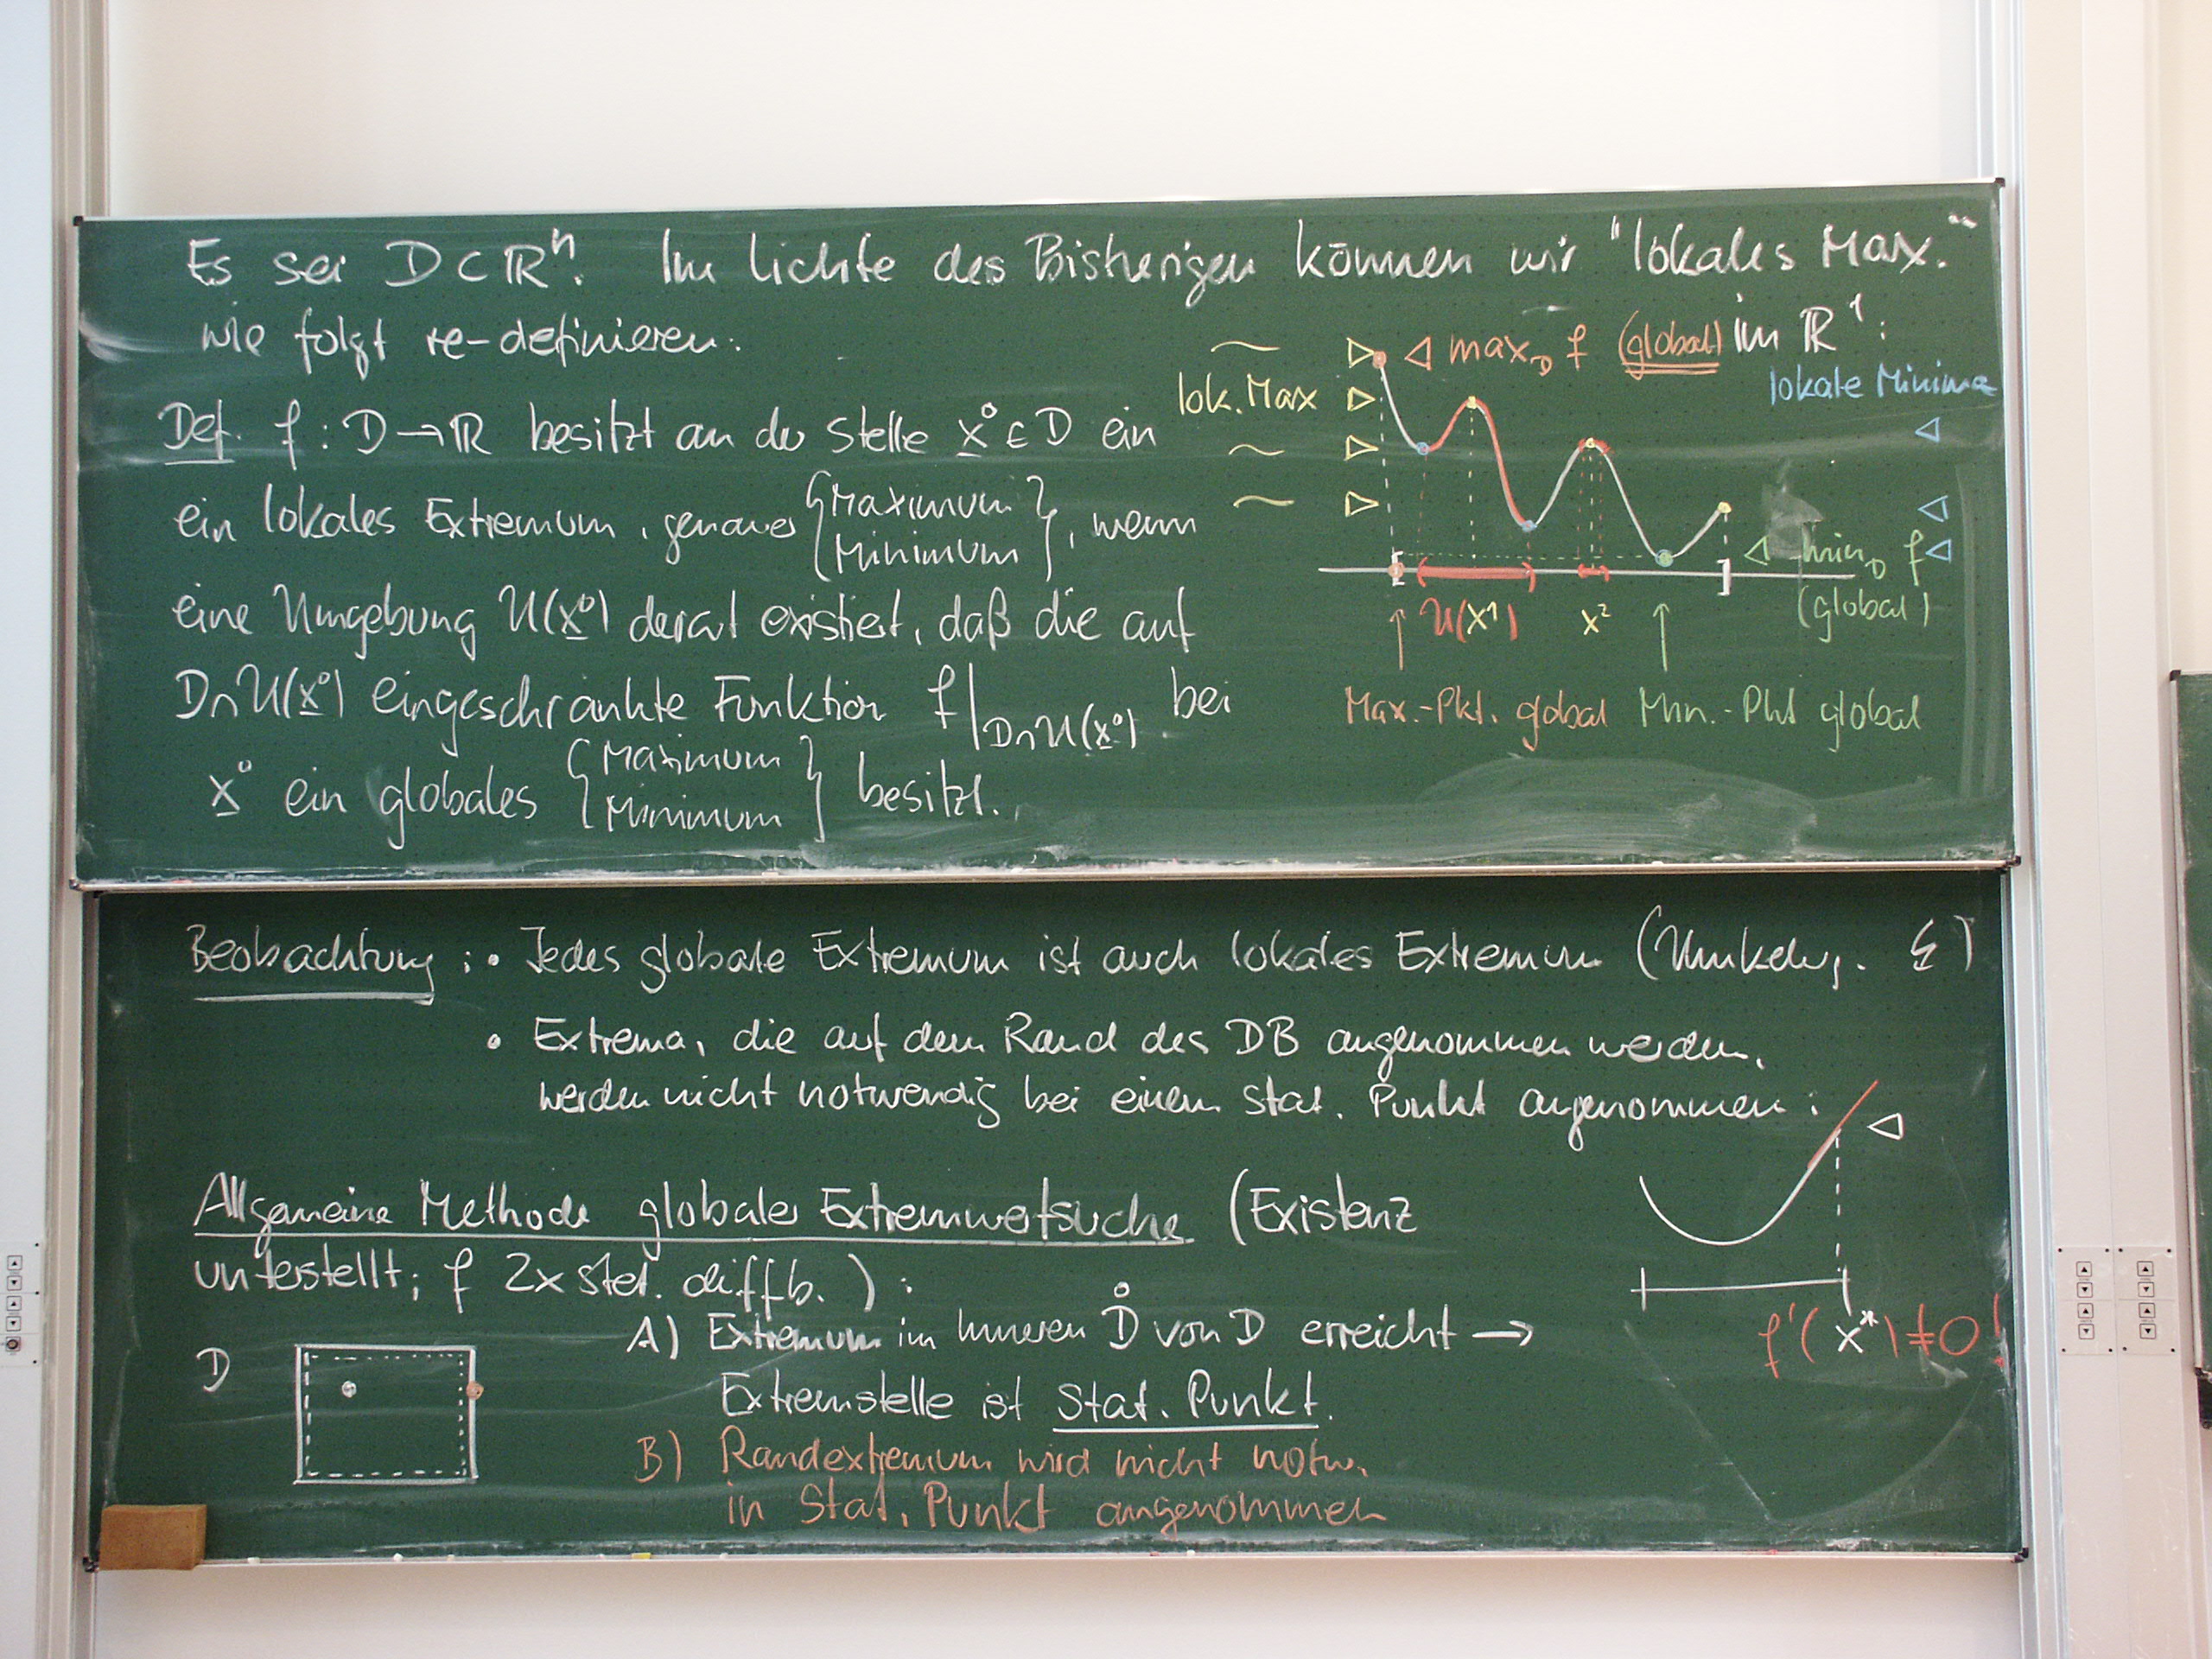 Es sei D ⊂ ℝⁿ. Im Lichte des Bisherigen können wir "lokales Max."
wie folgt re-definieren:
Def. f : D → ℝ besitzt an der Stelle x⁰ ∈ D ein
ein lokales Extremum, genauer { Maximum
Minimum }, wenn
eine Umgebung U(x⁰) derart existiert, daß die auf
D∩U(x⁰) eingeschränkte Funktion f|D∩U(x⁰) bei
x⁰ ein globales { Maximum
Minimum } besitzt.
max_D f (global) im ℝ¹:
lokale Minima
lok. Max
min_D f
(global)
U(x¹) x²
Max.-Pkt. global Min.-Pkt global
Beobachtung: • Jedes globale Extremum ist auch lokales Extremum (Umkehrg. ↯)
• Extrema, die auf dem Rand des DB angenommen werden,
werden nicht notwendig bei einem stat. Punkt angenommen:
Allgemeine Methode globaler Extremwertsuche (Existenz
unterstellt; f 2x stet. diffb.):
A) Extremum im Inneren D̊ von D erreicht →
Extremstelle ist Stat. Punkt.
B) Randextremum wird nicht notw.
in Stat. Punkt angenommen
D
f'(x*) ≠ 0!